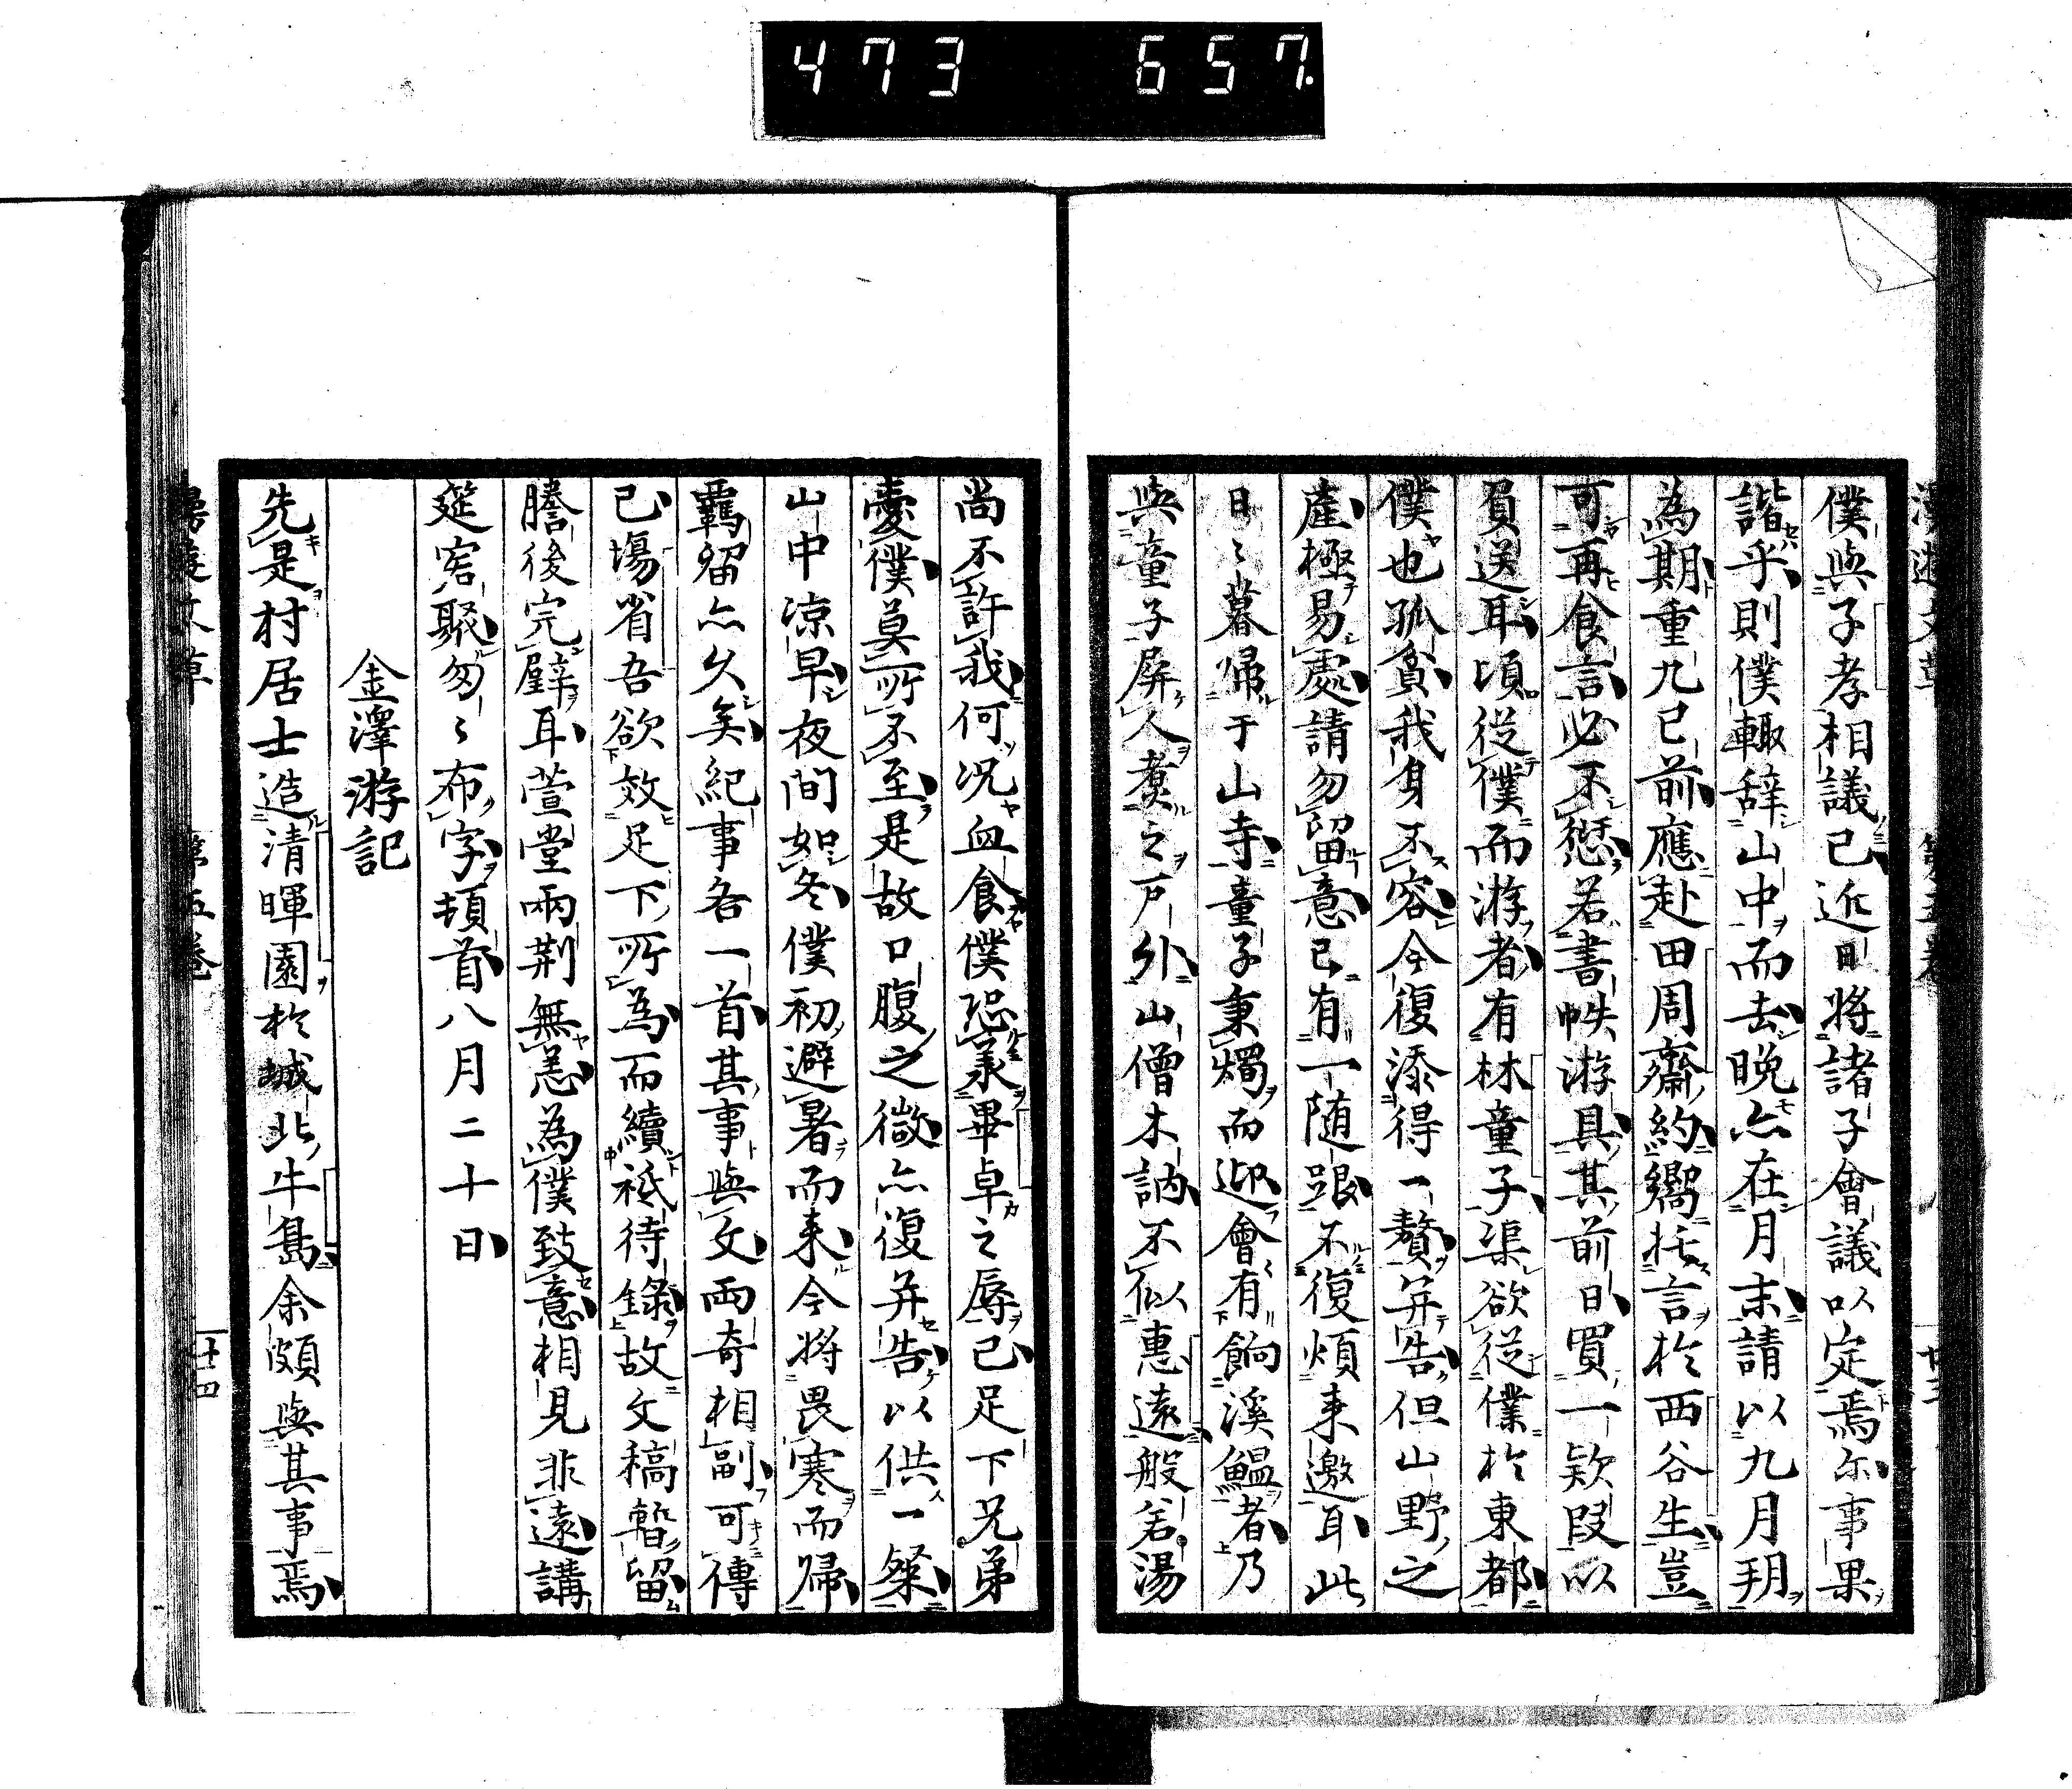 473 657.
僕與子孝相議已近日將諸子會議以定焉尓事果
諧乎則僕輙辞山中而去晚亦在月末請以九月朔
為期重九已前應赴田周齋約嚮托言於西谷生豈
可再食言必不愆若書帙游具其前日買一欵段以
負送耳頃從僕而游者有林童子渠欲從僕於東都
僕也孤貧我身不容今復添得一贅并告但山野之
產極易處請勿留意已有一随跟不復煩来邀耳此
日〻暮歸于山寺童子秉燭而迎會有餉溪鰮者乃
與童子屏人煮之戸外山僧木訥不似惠遠般若湯
尚不許我何况血食僕恐蒙畢卓之辱已足下兄弟
憂僕莫所不至是故口腹之微亦復并告以供一粲
山中凉早夜間如冬僕初避暑而来今將畏寒而歸
羈留亦久矣紀事各一首其事與文両奇相副可傳
已塲省吾欲效足下所為而續祗待錄故文稿暫留
謄後完璧耳萱堂兩荆無恙為僕致意相見非遠講
筵窘聚匆〻布字頓首八月二十日
金澤游記
先是村居士造清暉園於城北牛嶌余頗與其事焉
廿四